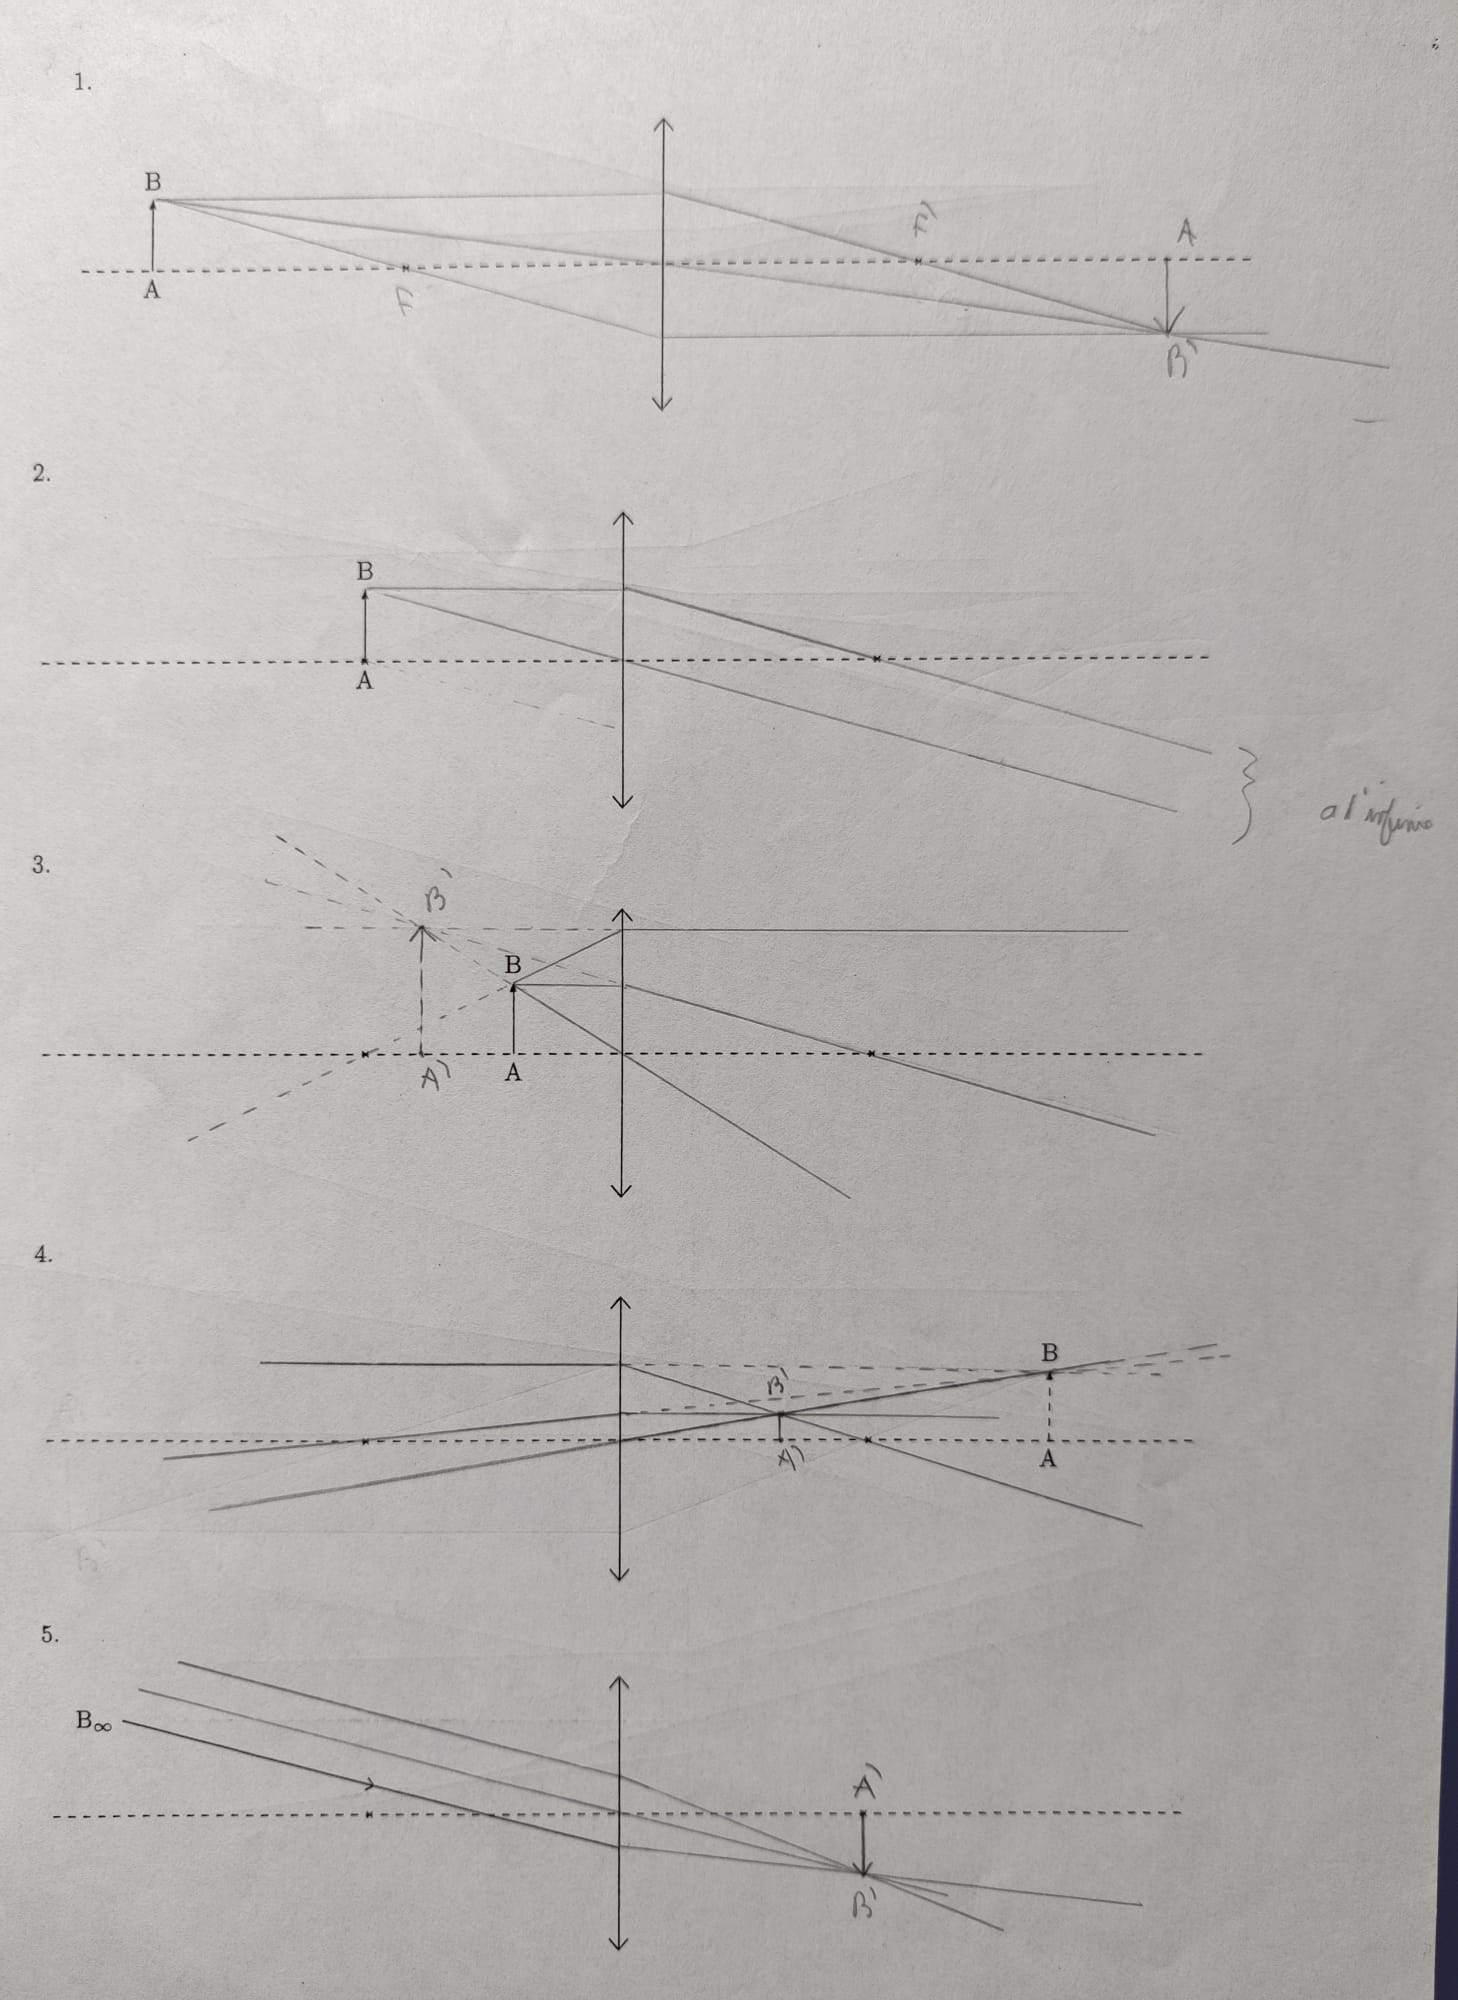 1.
B
F'
A
A
F
B'
2.
B
A
a l'infinie
3.
B'
B
A'
A
4.
B
B'
A'
A
B'
5.
B∞
A'
B'